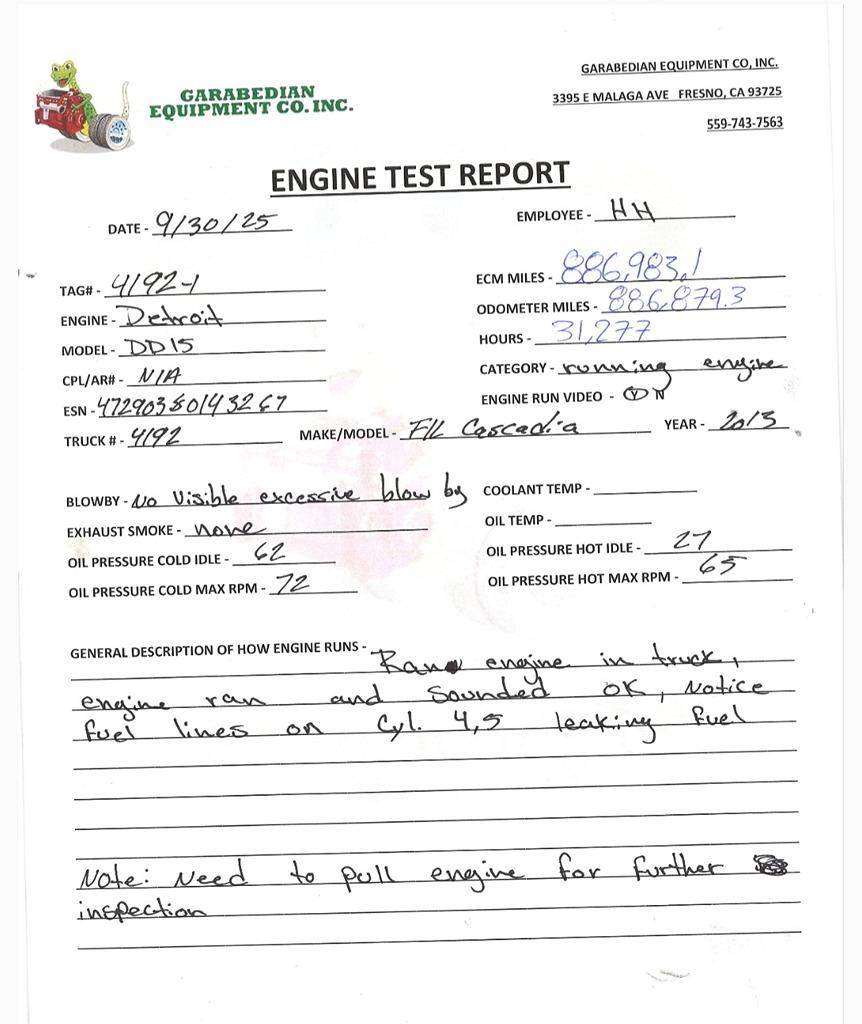 GARABEDIAN EQUIPMENT CO, INC.
GARABEDIAN
EQUIPMENT CO. INC.
3395 E MALAGA AVE FRESNO, CA 93725
559-743-7563
ENGINE TEST REPORT
DATE - 9/30/25
EMPLOYEE - HH
TAG# - 4192-1
ECM MILES - 886,983.1
ENGINE - Detroit
ODOMETER MILES - 886,879.3
MODEL - DD15
HOURS - 31,277
CPL/AR# - N/A
CATEGORY - running engine
ESN - 472903S0143267
ENGINE RUN VIDEO - Y N
TRUCK # - 4192
MAKE/MODEL - F/L Cascadia
YEAR - 2013
BLOWBY - No Visible excessive blow by
COOLANT TEMP -
EXHAUST SMOKE - none
OIL TEMP -
OIL PRESSURE COLD IDLE - 62
OIL PRESSURE HOT IDLE - 27
OIL PRESSURE COLD MAX RPM - 72
OIL PRESSURE HOT MAX RPM - 65
GENERAL DESCRIPTION OF HOW ENGINE RUNS - Ran engine in truck,
engine ran and sounded OK, Notice
fuel lines on Cyl. 4,5 leaking fuel
Note: Need to pull engine for further
inspection